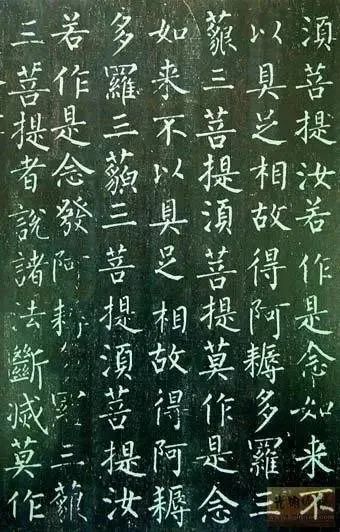 須菩提汝若作是念如来不
以具足相故得阿耨多羅三
藐三菩提須菩提莫作是念
如来不以具足相故得阿耨
多羅三藐三菩提須菩提汝
若作是念發阿耨羅三藐
三菩提者說諸法斷滅莫作